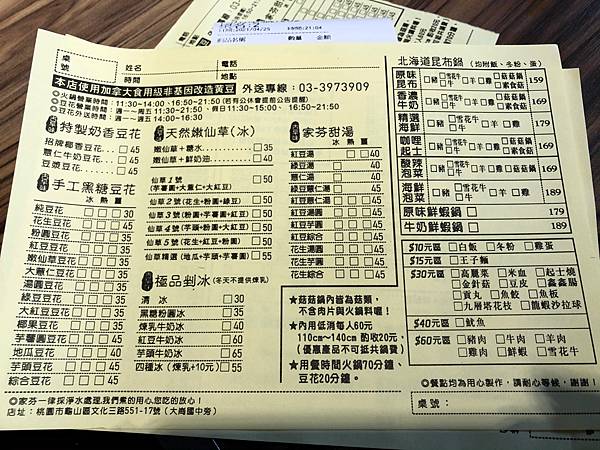 桌號 姓名 電話
時間 地點
本店使用加拿大食用級非基因改造黃豆 外送專線：03-3973909
◎火鍋營業時間：11:30~14:00、16:50~21:50 (若有公休會提前公告醒)
◎豆花營業時間：週一~週五 11:30~21:50、假日11:30~15:00、 16:50~21:50
◎豆花外送時間：週一~週五 14:00~16:30
特製奶香豆花
招牌椰香豆花... □45
薏仁牛奶豆花... □45
豆漿豆花 □45
手工黑糖豆花
冰 熱 薑
純豆花 □□□30
花生豆花 □□□45
粉圓豆花 □□□45
紅豆豆花 □□□45
嫩仙草豆花 □□□45
大薏仁豆花 □□□45
湯圓豆花 □□□45
綠豆豆花 □□□45
大紅豆豆花 □□□45
椰果豆花 □□□45
芋薯圓豆花 □□□45
地瓜豆花 □□□40
芋頭豆花 □□□45
綜合豆花 □□□45
天然嫩仙草(冰)
嫩仙草＋糖水 □35
嫩仙草＋鮮奶油 □40
仙草1號 □50
(芋薯圓+大薏仁+大紅豆)
仙草2號(花生+粉圓+綠豆) □50
仙草3號(粉圓+芋薯圓+紅豆) □50
仙草4號(芋頭+粉圓+大紅豆) □50
仙草5號(花生+紅豆+粉圓) □50
仙草精選(地瓜+芋頭+芋薯圓) □50
極品剉冰(冬天不提供煉乳)
清 冰 □30
黑糖粉圓冰 □35
煉乳牛奶冰 □40
紅豆牛奶冰 □60
芋頭牛奶冰 □40
四種冰(煉乳+10元) □55
家芬甜湯
冰 熱 薑
紅豆湯 □□ 40
綠豆湯 □□ 40
薏仁湯 □□ 40
綠豆薏仁湯 □□ 45
紅豆薏仁湯 □□ 45
紅豆湯圓 □□□45
綠豆湯圓 □□□45
花生湯圓 □□□45
花生紅豆 □□□45
花生綜合 □□□45
★菇菇鍋內皆為菇類，
不含肉片與火鍋料喔！
★內用低消每人60元
110cm~140cm 酌收20元，
(優惠產品不可抵共鍋費)
★用餐時間火鍋70分鐘、
豆花20分鐘。
北海道昆布鍋(均附飯、冬粉、蛋)
原味昆布 □豬□雪花牛□羊□雞□菇菇鍋□素食菇 159
香濃牛奶 □豬□雪花牛□羊□雞□菇菇鍋□素食菇 169
精選海鮮 □豬□雪花牛□羊□雞 179
咖哩起士 □豬□雪花牛□羊□雞□菇菇鍋 169
酸辣泡菜 □豬□雪花牛□羊□雞□菇菇鍋 169
海鮮泡菜 □豬□雪花牛□羊□雞 189
原味鮮蝦鍋 □ 179
牛奶鮮蝦鍋 □ 189
$10元區 □白飯 □冬粉 □雞蛋
$15元區 □王子麵
$30元區 □高麗菜 □米血 □起士燒
□金針菇 □豆皮 □鑫鑫腸
□貢丸 □魚餃 □魚板
□九層塔花枝 □龍蝦沙拉球
$40元區 □魷魚
$60元區 □豬肉 □牛肉 □羊肉
□雞肉 □鮮蝦 □雪花牛
◎餐點均為用心製作，請耐心等候，謝謝！
桌號：
◎家芬一律採淨水處理,我們煮的用心,您吃的放心！
店址：桃園市龜山區文化三路551-17號（大崗國中旁）